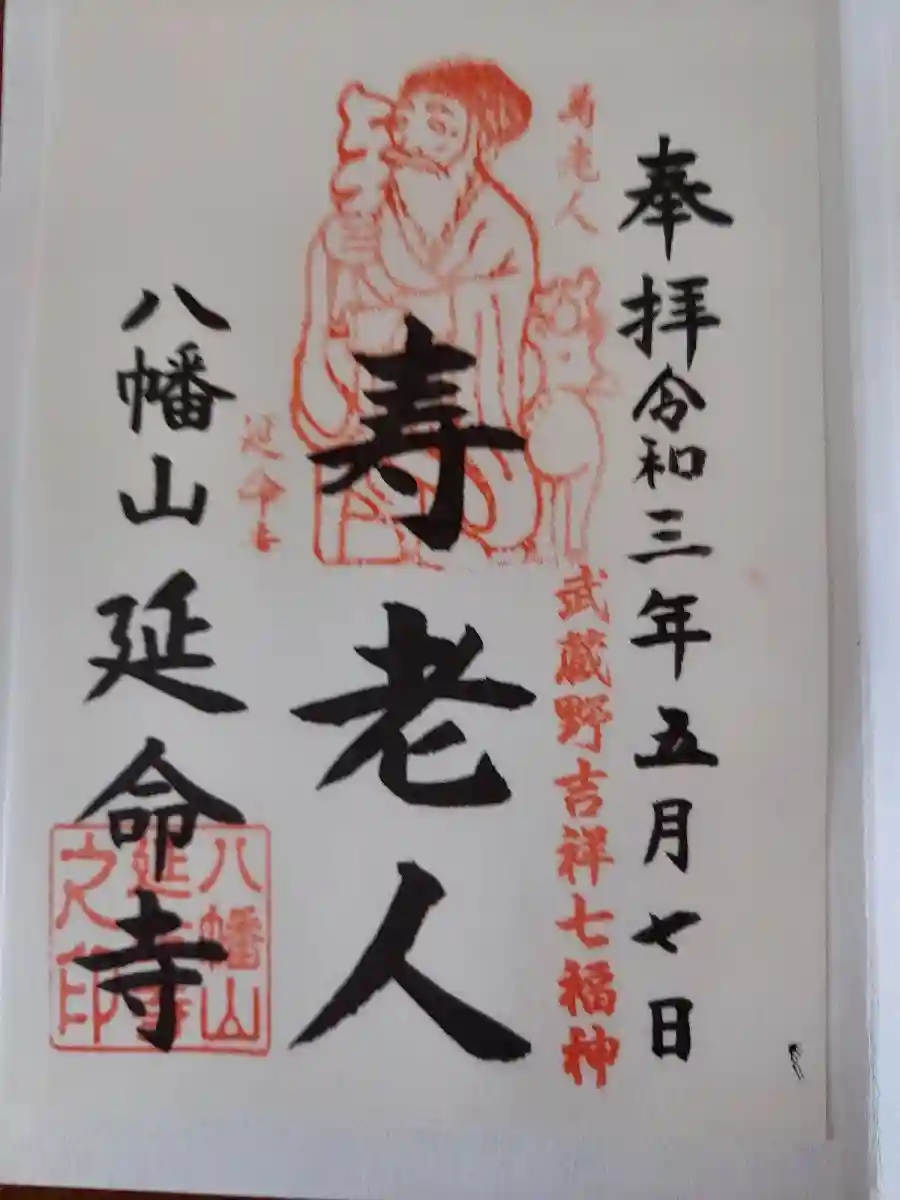 奉拝令和三年五月七日
寿老人
武蔵野吉祥七福神
寿老人
延命寺
八幡山延命寺
八幡山
延命寺
之印